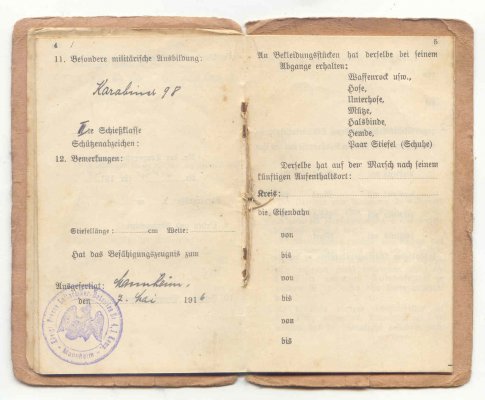 4
11. Besondere militärische Ausbildung:
Karabiner 98
II te Schießklasse
Schützenabzeichen:
12. Bemerkungen:
Stiefellänge: cm Weite:
Hat das Befähigungszeugnis zum
Ausgefertigt: Mannheim,
den 7. Mai 1916
Mannheim
5
An Bekleidungsstücken hat derselbe bei seinem
Abgange erhalten:
Waffenrock usw.,
Hose,
Unterhose,
Mütze,
Halsbinde,
Hemde,
Paar Stiefel (Schuhe)
Derselbe hat auf dem Marsch nach seinem
künftigen Aufenthaltsort:
Kreis:
die Eisenbahn
von
bis
von
bis
von
bis